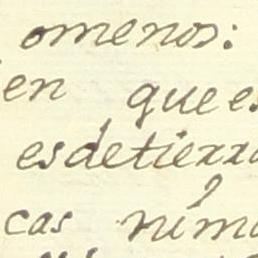 omenos:
en que es
es de tierra
cas num